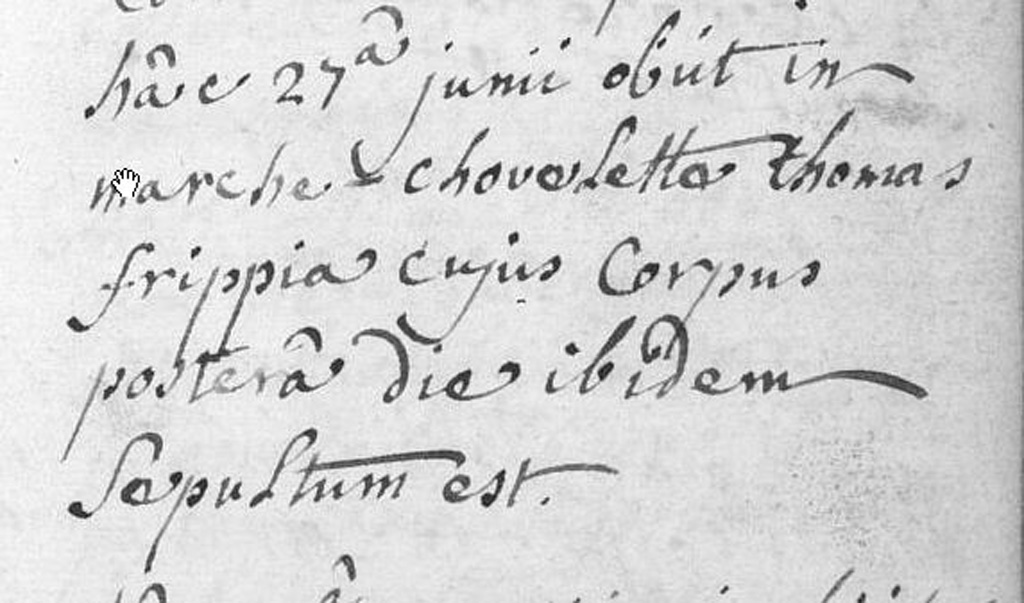 hâc 27â junii obiit in
marche - chovelette thomas
frippia cujus Corpus
posterâ die ibidem
Sepultum est.